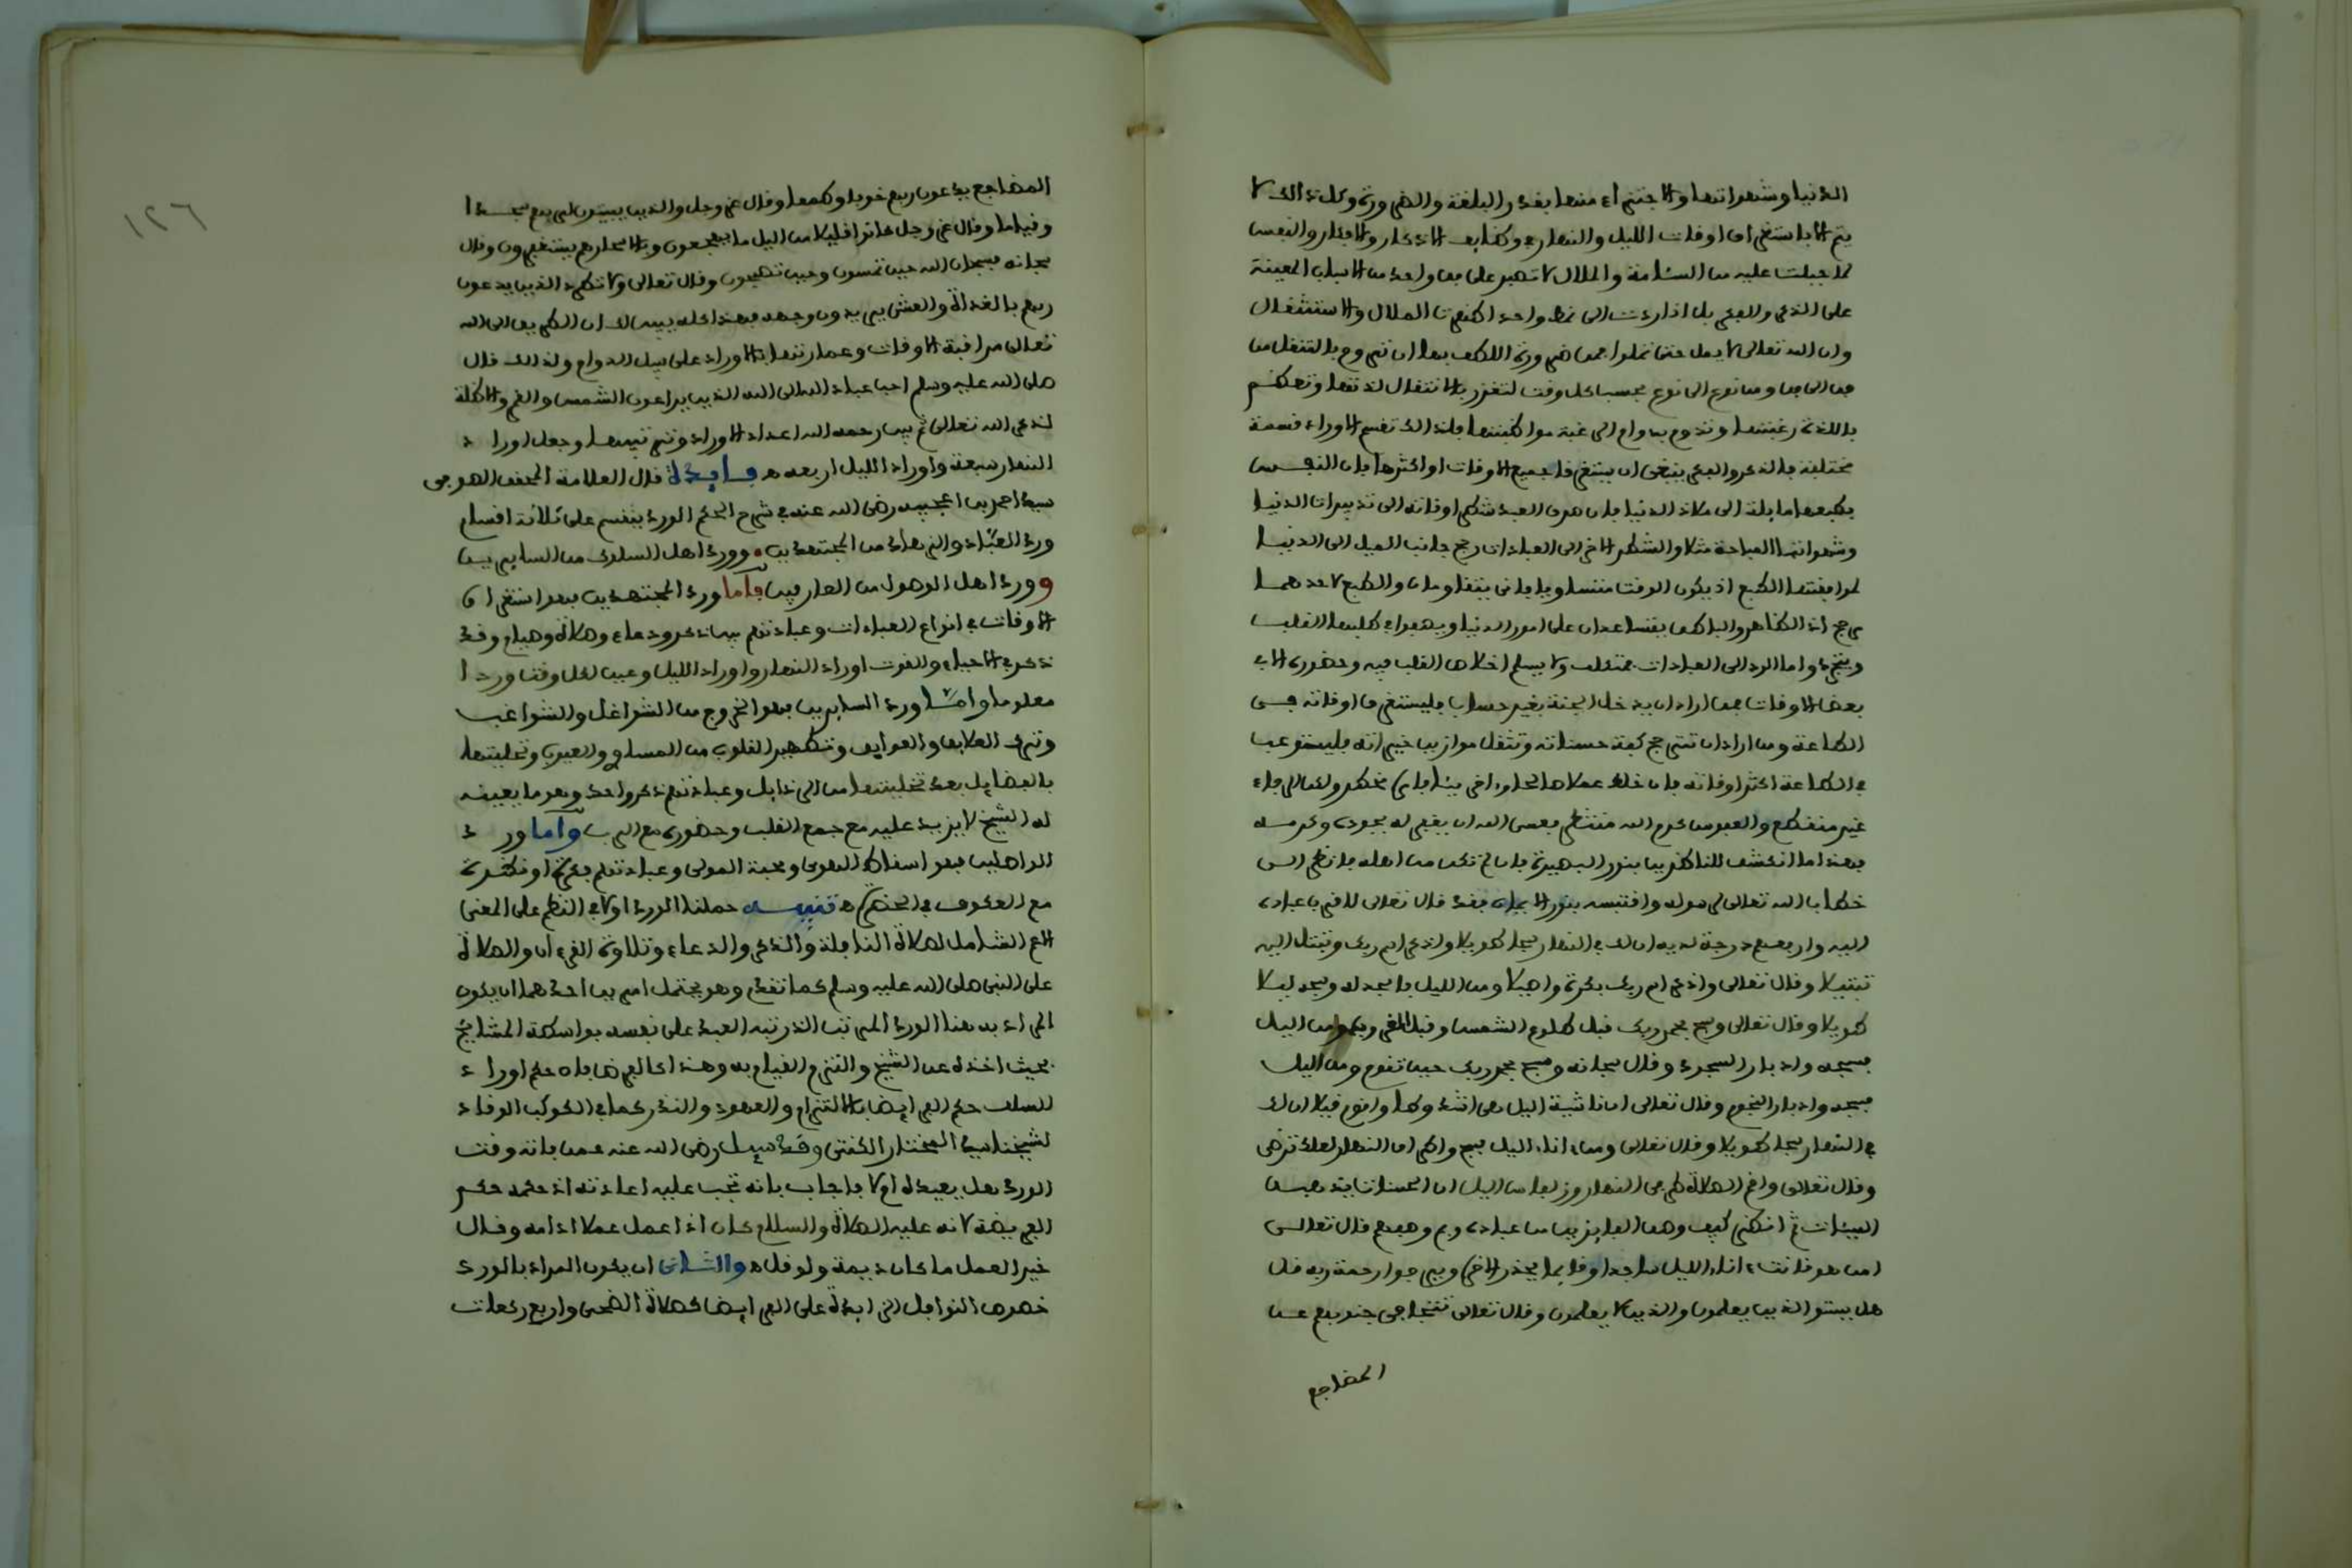 الدنيا وشهواتها والاجتزاء منها بقدر البلغة والضرورة وكل ذالك لا
يتم الا باستغراق اوقات الليل والنهار في وظايف الاذكار والافكار والنفس
لما جبلت عليه من السئامة والملال لا تصبر على فن واحد من الاسباب المعينة
على الذكر والفكر بل اذا ردت الى نمط واحد اظهرت الملال والاستثقال
وان الله تعالى لا يمل حتى تملوا فمن ضرورة اللطف بها ان تروح بالتنقل من
فن الى فن ومن نوع الى نوع بحسب كل وقت لتغزر بالانتقال لذتها وتعظم
باللذة رغبتها وتدوم بدوام الرغبة مواظبتها فلذالك تقسم الاوراد قسمة
مختلفة فالذكر والفكر ينبغي ان يستغرقا جميع الاوقات او اكثرها فان النفس
بطبعها مايلة الى ملاذ الدنيا فان صرف العبد شطر اوقاته الى تدبيرات الدنيا
وشهواتها المباحة مثلا والشطر الاخر الى العبادات رجح جانب الميل الى الدنيا
لموافقتها الطبع اذ يكون الوقت متساويا فانى يتقاومان والطبع لاحدهما
مرجح اذ الظاهر والباطن يتساعدان على امور الدنيا ويصفوا في طلبها القلب
ويتجرد واما الرد الى العبادات فمتكلف ولا يسلم اخلاص القلب فيه وحضوره الا في
بعض الاوقات فمن اراد ان يدخل الجنة بغير حساب فليستغرق اوقاته في
الطاعة ومن اراد ان تترجح كفة حسناته وتثقل موازين خيراته فليستوعب
في الطاعة اكثر اوقاته فان خلط عملا صالحا واخر سيئا فامره مخطر ولكن الرجاء
غير منقطع والعفو من كرم الله منتظر فعسى الله ان يغفر له بجوده وكرمه
فهذا ما انكشف للناظرين بنور البصيرة فان لم تكن من اهله فانظر الى
خطاب الله تعالى لرسوله واقتبسه بنور الايمان فقد قال تعالى لاقرب عباده
اليه وارفعهم درجة لديه ان لك في النهار سبحا طويلا واذكر اسم ربك وتبتل اليه
تبتيلا وقال تعالى واذكر اسم ربك بكرة واصيلا ومن الليل فاسجد له وسبحه ليلا
طويلا وقال تعالى وسبح بحمد ربك قبل طلوع الشمس وقبل الغروب ومن اليل
فسبحه وادبار السجود وقال سبحانه وسبح بحمد ربك حين تقوم ومن اليل
فسبحه وادبار النجوم وقال تعالى ان ناشئة اليل هي اشد وطا واقوم قيلا ان لك
في النهار سبحا طويلا وقال تعالى ومن اناء اليل فسبح واطراف النهار لعلك ترضى
وقال تعالى واقم الصلاة طرفي النهار وزلفا من اليل ان الحسنات يذهبن
السيئات ثم انظر كيف وصف الفايزين من عباده وبم وصفهم قال تعالى
امن هو قانت اناء الليل ساجدا وقايما يحذر الاخرة ويرجوا رحمة ربه قل
هل يستوى الذين يعلمون والذين لا يعلمون وقال تعالى تتجافى جنوبهم عن
المضاجع
المضاجع يدعون ربهم خوفا وطمعا وقال عز وجل والذين يبيتون لربهم سجدا
وقياما وقال عز وجل كانوا قليلا من اليل ما يهجعون وبالاسحار هم يستغفرون وقال
سبحانه فسبحان الله حين تمسون وحين تصبحون وقال تعالى ولا تطرد الذين يدعون
ربهم بالغداة والعشي يريدون وجهه فهذا كله يبين لك ان الطريق الى الله
تعالى مراقبة الاوقات وعمارتها بالاوراد على سبيل الدوام ولذلك قال
صلى الله عليه وسلم احب عباد الله الى الله الذين يراعون الشمس والقمر والاظلة
لذكر الله تعالى ثم بين رحمه الله اعداد الاوراد وترتيبها وجعل اوراد
النهار سبعة واوراد الليل اربعة ه فايدة قال العلامة المحقق الصوفي
سيد احمد بن اعجيبه رضي الله عنه في شرح الحكم الورد ينقسم على ثلاثة اقسام
ورد العباد والزهاد من المجتهدين . وورد اهل السلوك من السايرين
وورد اهل الوصول من العارفين فاما ورد المجتهدين فهو استغراق
الاوقات في انواع العبادات وعبادتهم بين ذكر ودعاء وصلاة وصيام وقد
ذكر في الاحياء والقوت اوراد النهار واوراد الليل وعين لكل وقت وردا
معلوما واما ورد السايرين فهو الخروج من الشواغل والشواغب
وترك العلايق والعوايق وتطهير القلوب من المساوي والعيوب وتحليتها
بالفضايل بعد تخليتها من الرذايل وعبادتهم ذكر واحد وهو ما يعينه
له الشيخ لا يزيد عليه مع جمع القلب وحضوره مع الرب واما ورد
الواصلين فهو اسقاط الهوى ومحبة المولى وعبادتهم فكرة او نظرة
مع العكوف في الحضرة ه تنبيه حملنا الورد اولا في النظم على المعنى
الاعم الشامل لصلاة النافلة والذكر والدعاء وتلاوة القرءان والصلاة
على النبي صلى الله عليه وسلم كما تقدم وهو يحتمل امرين احدهما ان يكون
المراد به هنا الورد المرتب الذي رتبه العبد على نفسه بواسطة المشايخ
بحيث اخذه عن الشيخ والتزم القيام به وهذا كالفرض فان حكم اوراد
السلف حكم الفرايض بالالتزام والعهود والنذر كما في الكوكب الوقاد
لشيخنا سيد المختار الكنتي وقد سيل رضي الله عنه عمن فاته وقت
الورد هل يعيده ام لا فاجاب بانه تجب عليه اعادته اذ حكمه حكم
الفريضة لانه عليه الصلاة والسلام كان اذا عمل عملا ادامه وقال
خير العمل ما كان ديمة ولو قل ه والثاني ان يكون المراد بالورد
خصوص النوافل الزايدة على الفرايض كصلاة الضحى واربع ركعات
١٢٦